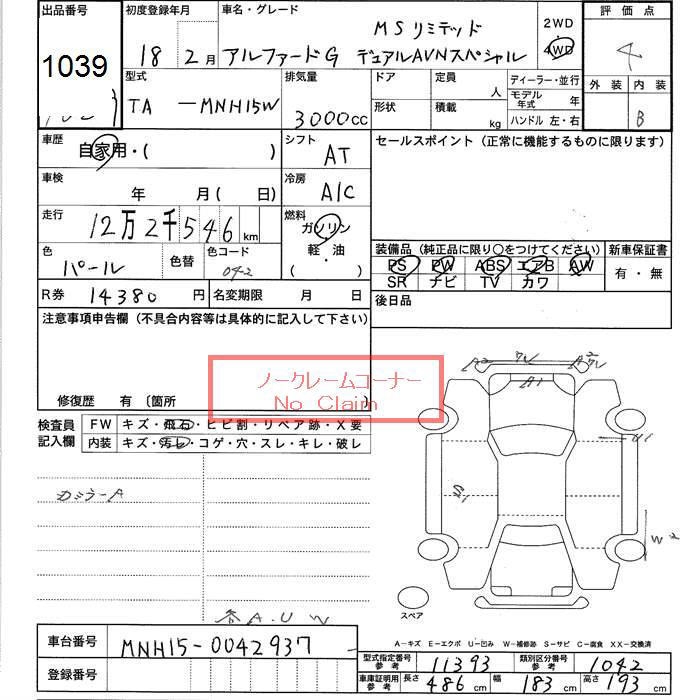 出品番号
1039
初度登録年月
18 2月
車名・グレード
MSリミテッド
アルファードG デュアルAVNスペシャル
2WD
4WD
評価点
4
外装 内装
B
型式
TA-MNH15W
排気量
3000cc
ドア
形状
定員 人
積載 kg
ディーラー・並行
モデル年式 年
ハンドル 左・右
車歴
自家用・( )
シフト
AT
セールスポイント (正常に機能するものに限ります)
車検
年 月( 日)
冷房
A/C
走行
12万2千546km
燃料
ガソリン
軽・油
( )
色
パール
色替
色コード
042
装備品 (純正品に限り○をつけてください)
PS PW ABS エアB AW
SR ナビ TV カワ
新車保証書
有・無
R券 14380円
名変期限 月 日
後日品
注意事項申告欄 (不具合内容等は具体的に記入して下さい)
ノークレームコーナー
No Claim
修復歴 有 〔箇所 〕
検査員記入欄
FW キズ・飛石・ヒビ割・リペア跡・X要
内装 キズ・汚レ・コゲ・穴・スレ・キレ・破レ
A2 A2
A1
U1
W2
カミラーA
各A.U W
スペア
A-キズ E-エクボ U-凹み W-補修跡 S-サビ C-腐食 XX-交換済
車台番号 MNH15-0042937
登録番号
型式指定番号 参考 11393
類別区分番号 参考 1042
車庫証明用 参考 長さ 486cm 幅 183cm 高さ 193cm